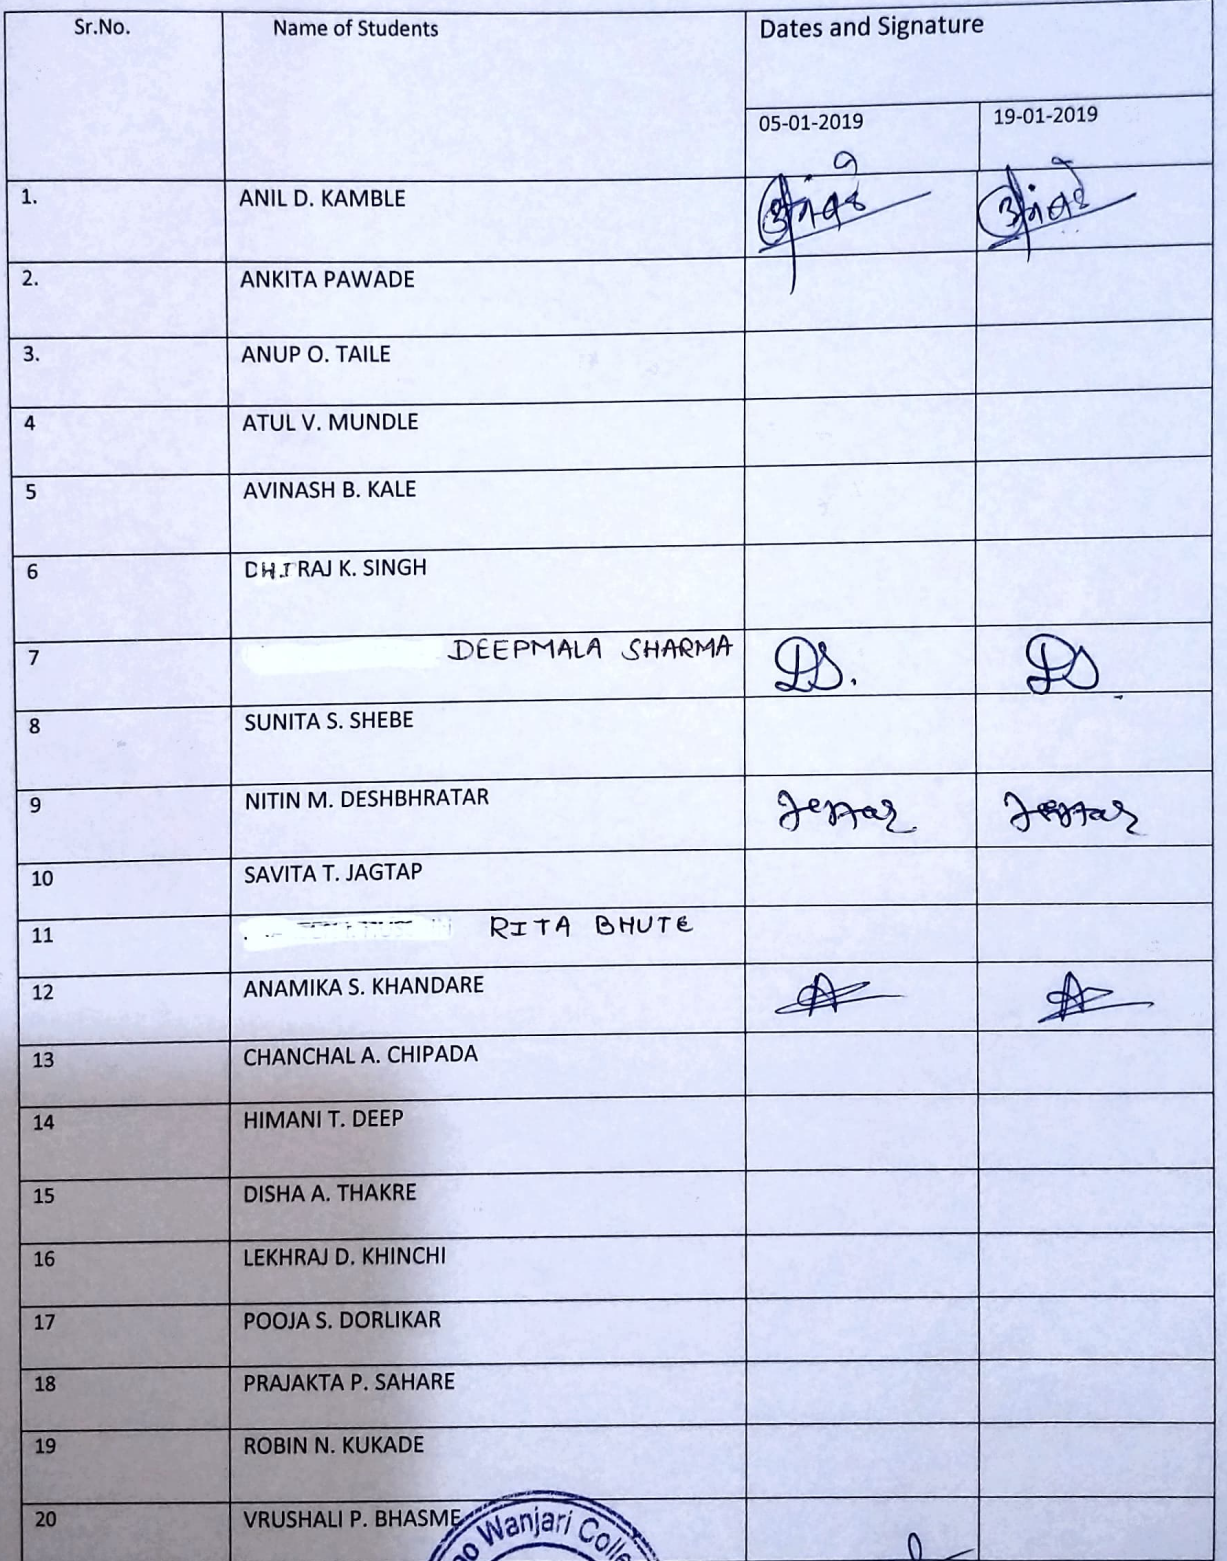 Sr.No. Name of Students Dates and Signature
05-01-2019 19-01-2019
1. ANIL D. KAMBLE
2. ANKITA PAWADE
3. ANUP O. TAILE
4 ATUL V. MUNDLE
5 AVINASH B. KALE
6 DHIRAJ K. SINGH
7 DEEPMALA SHARMA DS. DS
8 SUNITA S. SHEBE
9 NITIN M. DESHBHRATAR
10 SAVITA T. JAGTAP
11 RITA BHUTE
12 ANAMIKA S. KHANDARE
13 CHANCHAL A. CHIPADA
14 HIMANI T. DEEP
15 DISHA A. THAKRE
16 LEKHRAJ D. KHINCHI
17 POOJA S. DORLIKAR
18 PRAJAKTA P. SAHARE
19 ROBIN N. KUKADE
20 VRUSHALI P. BHASME
Wanjari